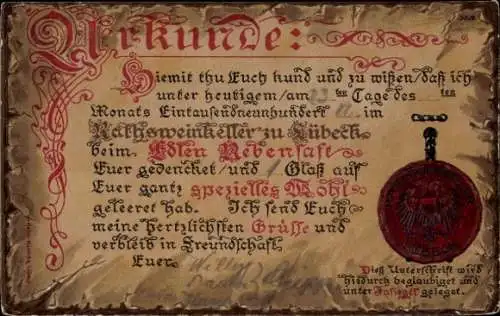 Urkunde:
Hiemit thu Euch kund und zu wißen/daß ich
unter heutigem/am 23 ten Tage des ten
Monats Eintausendneunhundert im
Rathsweinkeller zu Lübeck
beim Edlen Rebensaft
Euer gedencket/und Glaß auf
Euer gantz spezielles Wohl
geleeret hab. Ich send Euch
meine hertzlichsten Grüße und
verbleib in Freundschaft
Euer Willy
Dieß Unterschrift wird
hiedurch beglaubiget und
unter Insiegel geleget.